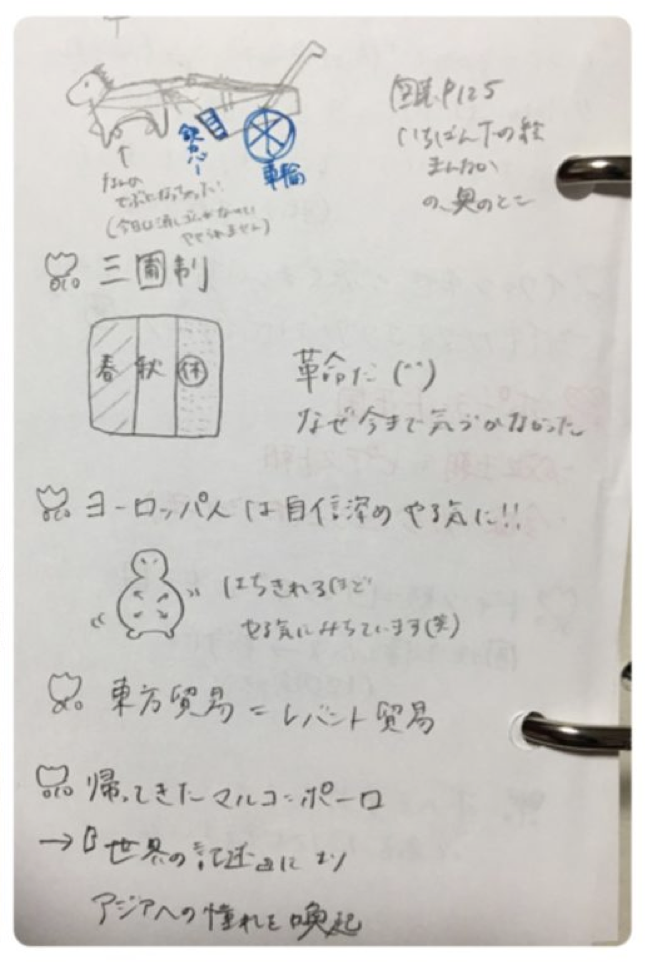 図説P125
いちばん下の絵
まんなか
の、奥のとこ
鉄カバー
車輪
なんか
でぶになっちゃった!
(今日は消しゴムがないい
やせられません)
三圃制
春 秋 休
革命だ(°°)
なぜ今まで気づかなかった
ヨーロッパ人は自信深めやる気に!!
はちきれるほど
やる気にみちています(笑)
東方貿易=レバント貿易
帰ってきたマルコ=ポーロ
→『世界の記述』により
アジアへの憧れを喚起